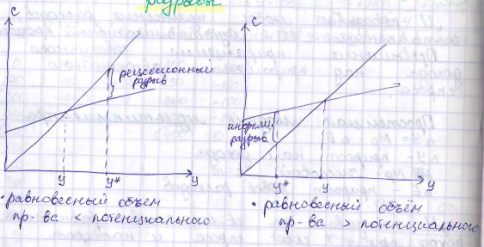 разрывы
C
рецессионный
разрыв
y
y*
y
• равновесный объём
пр-ва < потенциального
C
инфляц.
разрыв
y*
y
y
• равновесный объём
пр-ва > потенциального